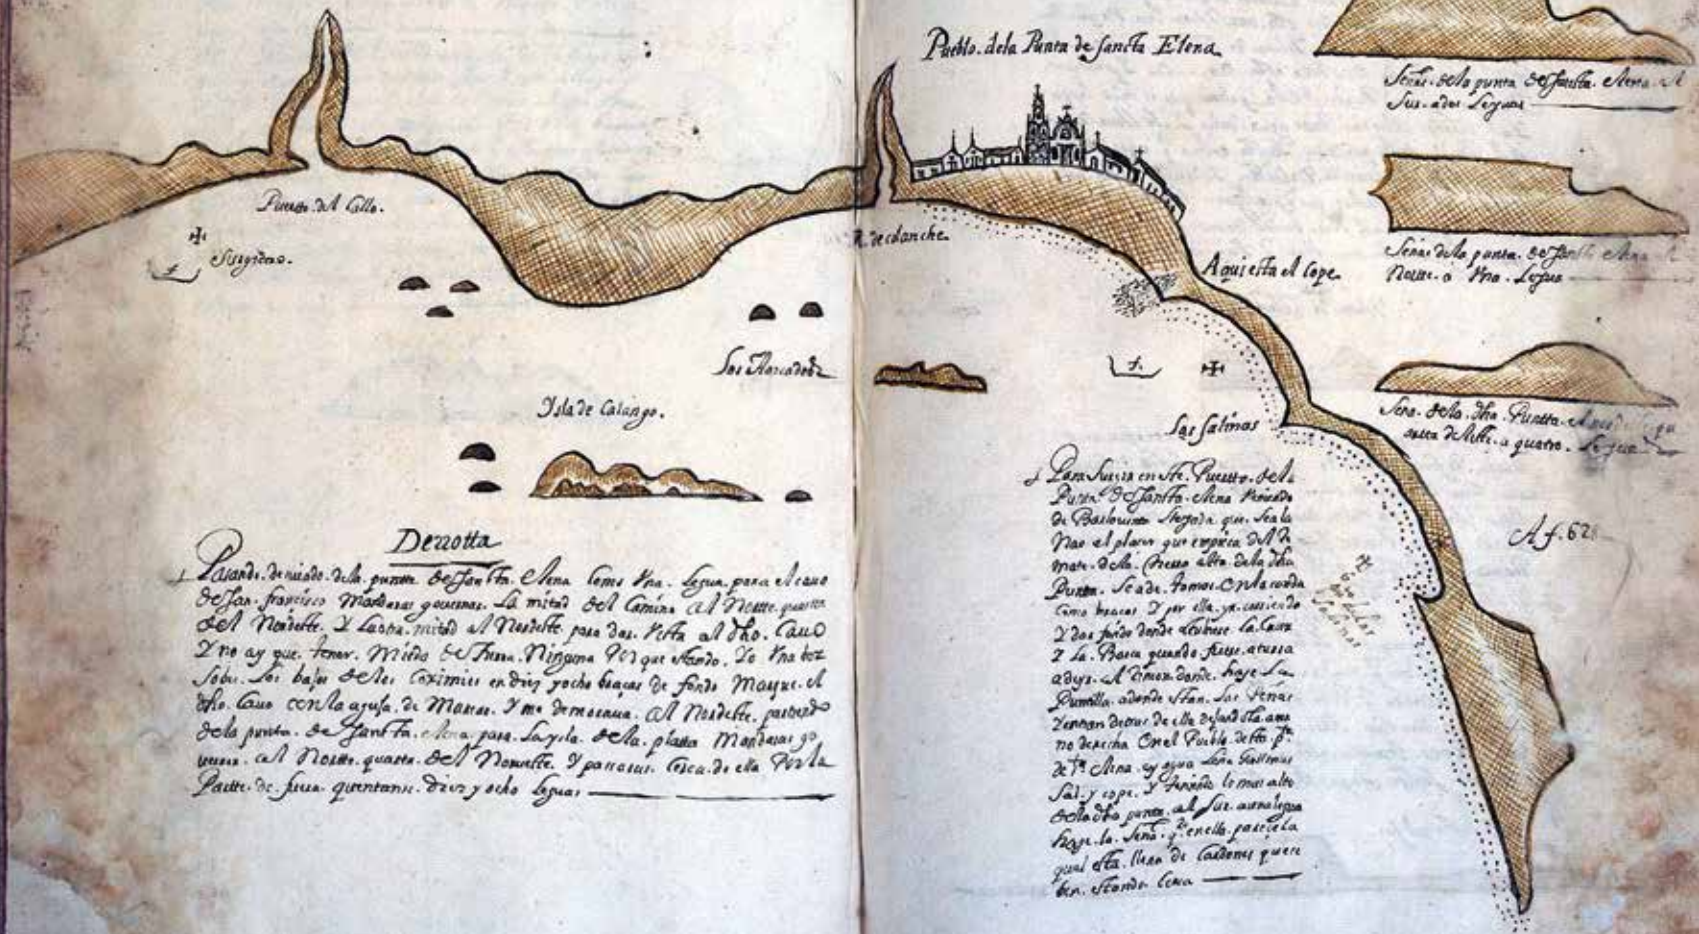 Pueblo. dela Punta de sancta Elena
Señas. dela punta de sancta. elena. al
Sur. a dos leguas
Puerto. del Callo.
Surgidero.
R. de colanche
Aqui esta el cope
Señas dela punta. de sancta elena
Norte. a Vna. legua
Los Ahorcados
Ysla de Calango.
Las salinas
Seña. dela. dha. Puntta.
quarta del este. a quatro. leguas
Derrotta
Pasando. de niado. dela. puntta. de sancta. elena Como Vna. legua. para el cauo
de san. francisco Mandaras gouernar. La mitad del Camino al Norte. quarta
del Nordeste. Y La otra. mitad al Nordeste. para dar. Vista al dho. Cauo
Y no ay que. tener. Miedo de tierra. Ninguna Porque estando. Yo Vna bez
Sobre. Los bajos de los Coximies en diez y ocho braças de fondo Marque. el
dho. Cauo con la aguja. de Marear. Y me demoraua. al Nordeste. partiendo
dela punta. de sancta. elena. para. La ysla. de la. platta Mandaras go
uernar. al Norte. quarta. del Noroeste. Y pasaras. Cerca. de ella Por la
Partte. de fuera. quentanse. Diez y ocho leguas
Para surgir en este. Puertto. dela
Punta de sancta. elena Viniendo
de Barlouento
Nao el placer que empieça del Re
mate. della. Mesa alta dela dha
Punta. se a de tomar. Con la sonda
Cinco braças Y por ella. yr. corriendo
Y dar fondo donde
Y La. Barca quando fuere. a tierra
a deyr. al Limon donde. haze La
Puntilla. adonde estan. Las Penas
Y entran detras de ella dejandola. ama
no derecha En el Pueblo. detta. pta
de sta elena. ay agua Leña Gallinas
Sal. y cope. Y teniendo lo mas alto
dela dha punta. al sur. a una legua
haze. la. seña. que en ella. parece la
qual esta. llena de Cardones que se
ben. estando Cerca
A f. 62
6 bras
delas
salinas